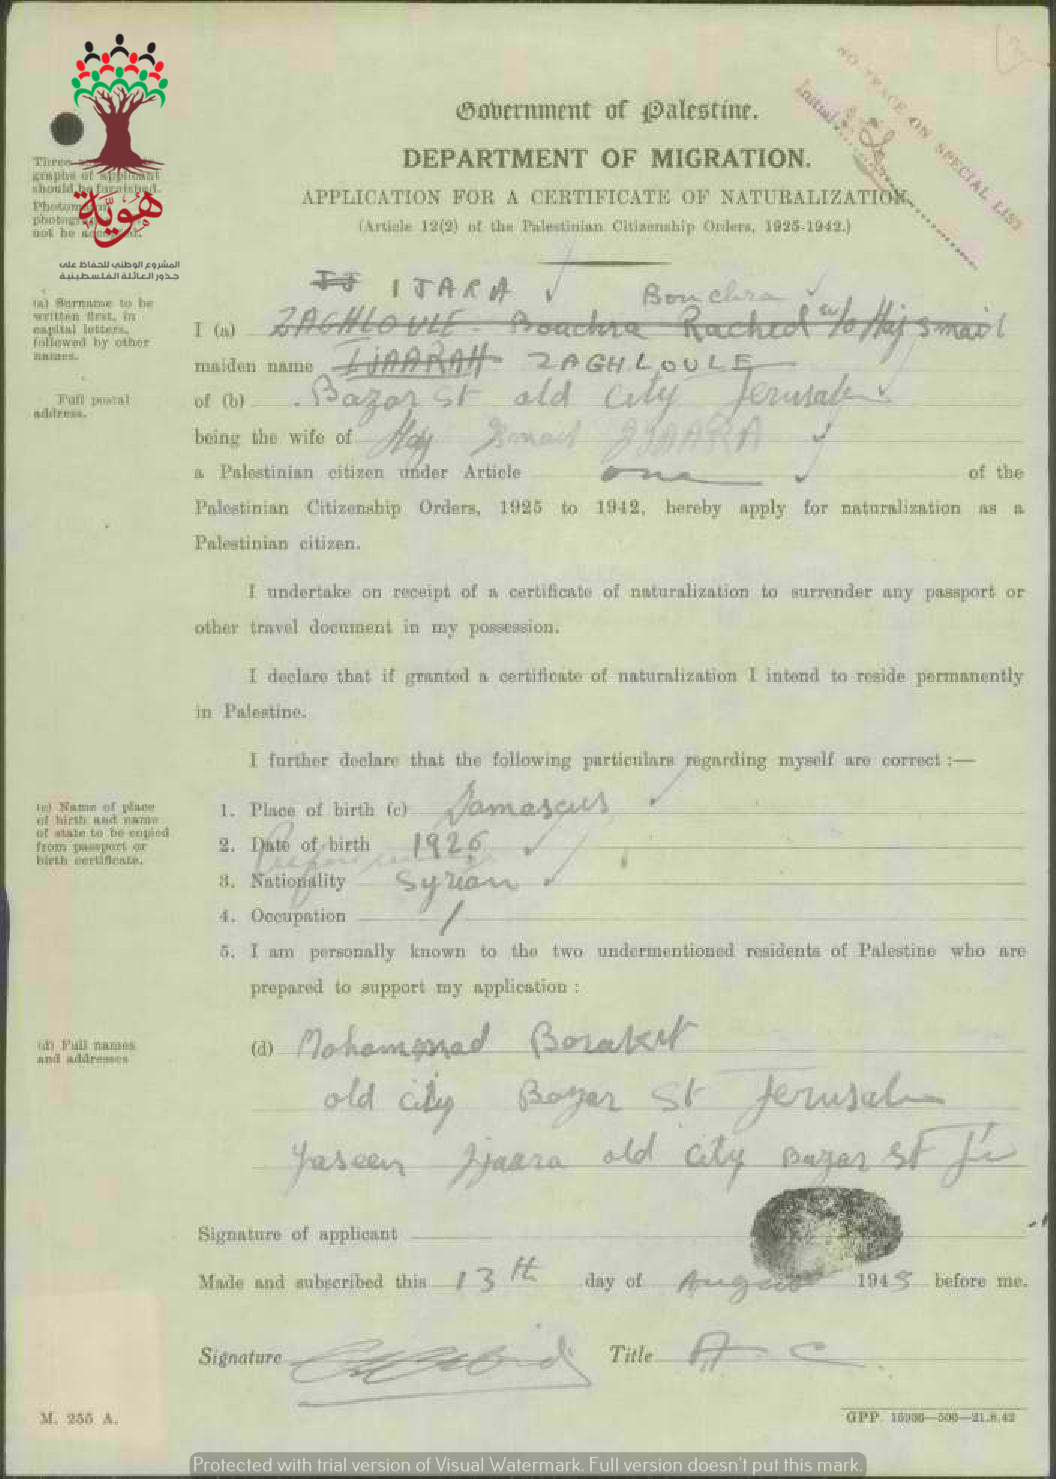 NO TRACE ON SPECIAL LIST
Initial
Government of Palestine.
DEPARTMENT OF MIGRATION.
APPLICATION FOR A CERTIFICATE OF NATURALIZATION.
(Article 12(2) of the Palestinian Citizenship Orders, 1925-1942.)
Three
graphs of applicant
should be furnished.
not be accepted.
هوية
المشروع الوطني للحفاظ على
جذور العائلة الفلسطينية
(a) Surname to be
written first, in
capital letters,
followed by other
names.
IJARA Bouchra
I (a) ZAGHLOULE - Bouchra Rached w/o Haj Smail
maiden name IJAARAH ZAGHLOULE
Full postal
address.
of (b) Bazar St old city Jerusalem
being the wife of Haj Ismail IJAARA
a Palestinian citizen under Article one of the
Palestinian Citizenship Orders, 1925 to 1942, hereby apply for naturalization as a
Palestinian citizen.
I undertake on receipt of a certificate of naturalization to surrender any passport or
other travel document in my possession.
I declare that if granted a certificate of naturalization I intend to reside permanently
in Palestine.
I further declare that the following particulars regarding myself are correct :—
(c) Name of place
of birth and name
of state to be copied
from passport or
birth certificate.
1. Place of birth (c) Damascus
2. Date of birth 1926
3. Nationality Syrian
4. Occupation /
5. I am personally known to the two undermentioned residents of Palestine who are
prepared to support my application :
(d) Full names
and addresses
(d) Mohammad Borakat
old city Bazar St Jerusalem
Yaseen Ijaara old city Bazar St
Signature of applicant
Made and subscribed this 13th day of August 1945 before me.
Signature Title A C
M. 255 A.
GPP.
Protected with trial version of Visual Watermark. Full version doesn't put this mark.